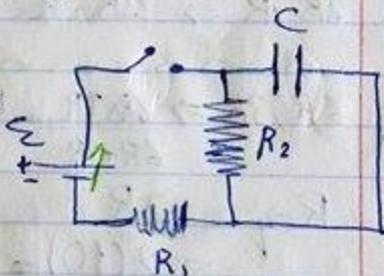 C
ε
+
-
R₂
R₁